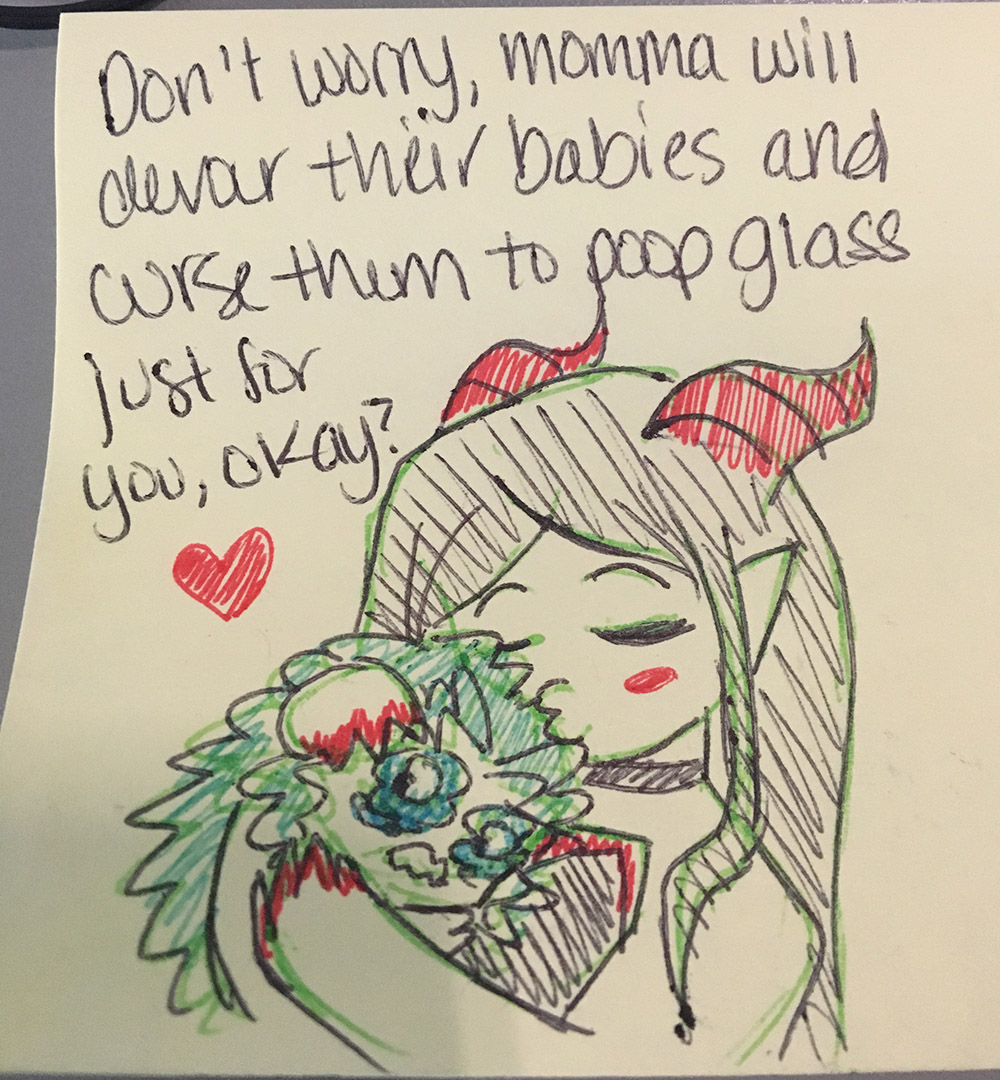 Don't worry, momma will
devar their babies and
curse them to poop glass
just for
you, okay?